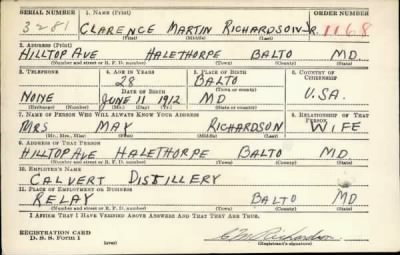 SERIAL NUMBER 1. NAME (Print) ORDER NUMBER
3281 CLARENCE MARTIN RICHARDSON JR. 1168
(First) (Middle) (Last)
2. ADDRESS (Print)
HILLTOP AVE HALETHORPE BALTO MD.
(Number and street or R. F. D. number) (Town) (County) (State)
3. TELEPHONE 4. AGE IN YEARS 5. PLACE OF BIRTH 6. COUNTRY OF CITIZENSHIP
28 BALTO
DATE OF BIRTH (Town or county)
NONE JUNE 11 1912 MD U.S.A.
(Exchange) (Number) (Mo.) (Day) (Yr.) (State or country)
7. NAME OF PERSON WHO WILL ALWAYS KNOW YOUR ADDRESS 8. RELATIONSHIP OF THAT PERSON
MRS MAY RICHARDSON WIFE
(Mr., Mrs., Miss) (First) (Middle) (Last)
9. ADDRESS OF THAT PERSON
HILLTOP AVE HALETHORPE BALTO MD
(Number and street or R. F. D. number) (Town) (County) (State)
10. EMPLOYER'S NAME
CALVERT DISTILLERY
11. PLACE OF EMPLOYMENT OR BUSINESS
RELAY BALTO MD
(Number and street or R. F. D. number) (Town) (County) (State)
I AFFIRM THAT I HAVE VERIFIED ABOVE ANSWERS AND THAT THEY ARE TRUE.
REGISTRATION CARD
D. S. S. Form 1 (over) C M Richardson
(Registrant's signature)